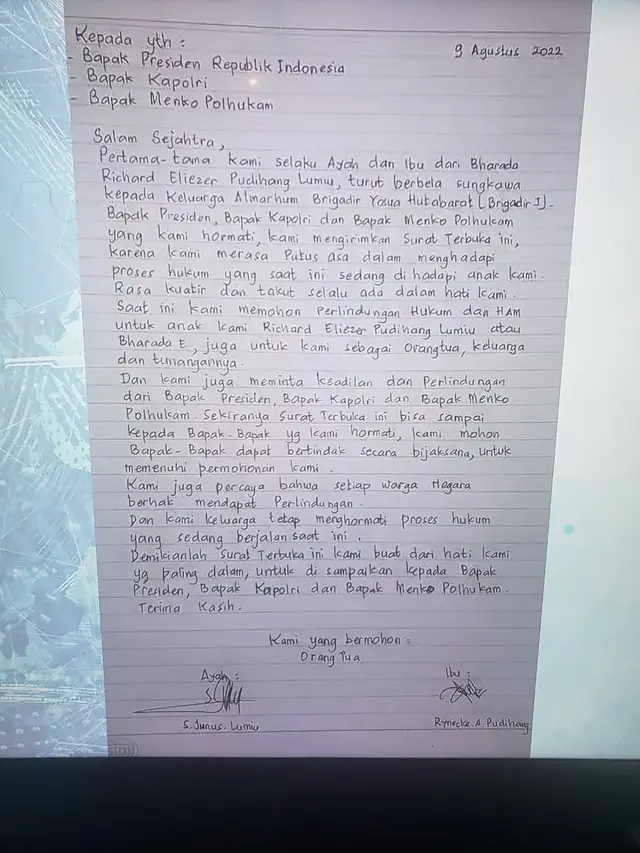 Kepada yth :
9 Agustus 2022
- Bapak Presiden Republik Indonesia
- Bapak Kapolri
- Bapak Menko Polhukam
Salam Sejahtra,
Pertama-tama kami selaku Ayah dan Ibu dari Bharada
Richard Eliezer Pudihang Lumiu, turut berbela sungkawa
kepada Keluarga Almarhum Brigadir Yosua Hutabarat [Brigadir J].
Bapak Presiden, Bapak Kapolri dan Bapak Menko Polhukam
yang kami hormati, kami mengirimkan Surat Terbuka ini,
karena kami merasa Putus asa dalam menghadapi
proses hukum yang saat ini sedang di hadapi anak kami.
Rasa kuatir dan takut selalu ada dalam hati kami.
Saat ini kami memohon Perlindungan Hukum dan HAM
untuk anak kami Richard Eliezer Pudihang Lumiu atau
Bharada E, juga untuk kami sebagai Orangtua, keluarga
dan tunangannya.
Dan kami juga meminta keadilan dan Perlindungan
dari Bapak Presiden, Bapak Kapolri dan Bapak Menko
Polhukam. Sekiranya Surat Terbuka ini bisa sampai
kepada Bapak-Bapak yg kami hormati, kami mohon
Bapak-Bapak dapat bertindak secara bijaksana, untuk
memenuhi permohonan kami.
Kami juga percaya bahwa setiap warga Negara
berhak mendapat Perlindungan.
Dan kami keluarga tetap menghormati proses hukum
yang sedang berjalan saat ini.
Demikianlah Surat Terbuka ini kami buat dari hati kami
yg paling dalam, untuk di sampaikan kepada Bapak
Presiden, Bapak Kapolri dan Bapak Menko Polhukam.
Terima Kasih.
Kami yang bermohon :
Orang Tua
Ayah :
Ibu :
S. Junus. Lumiu
Rynecke. A. Pudihang